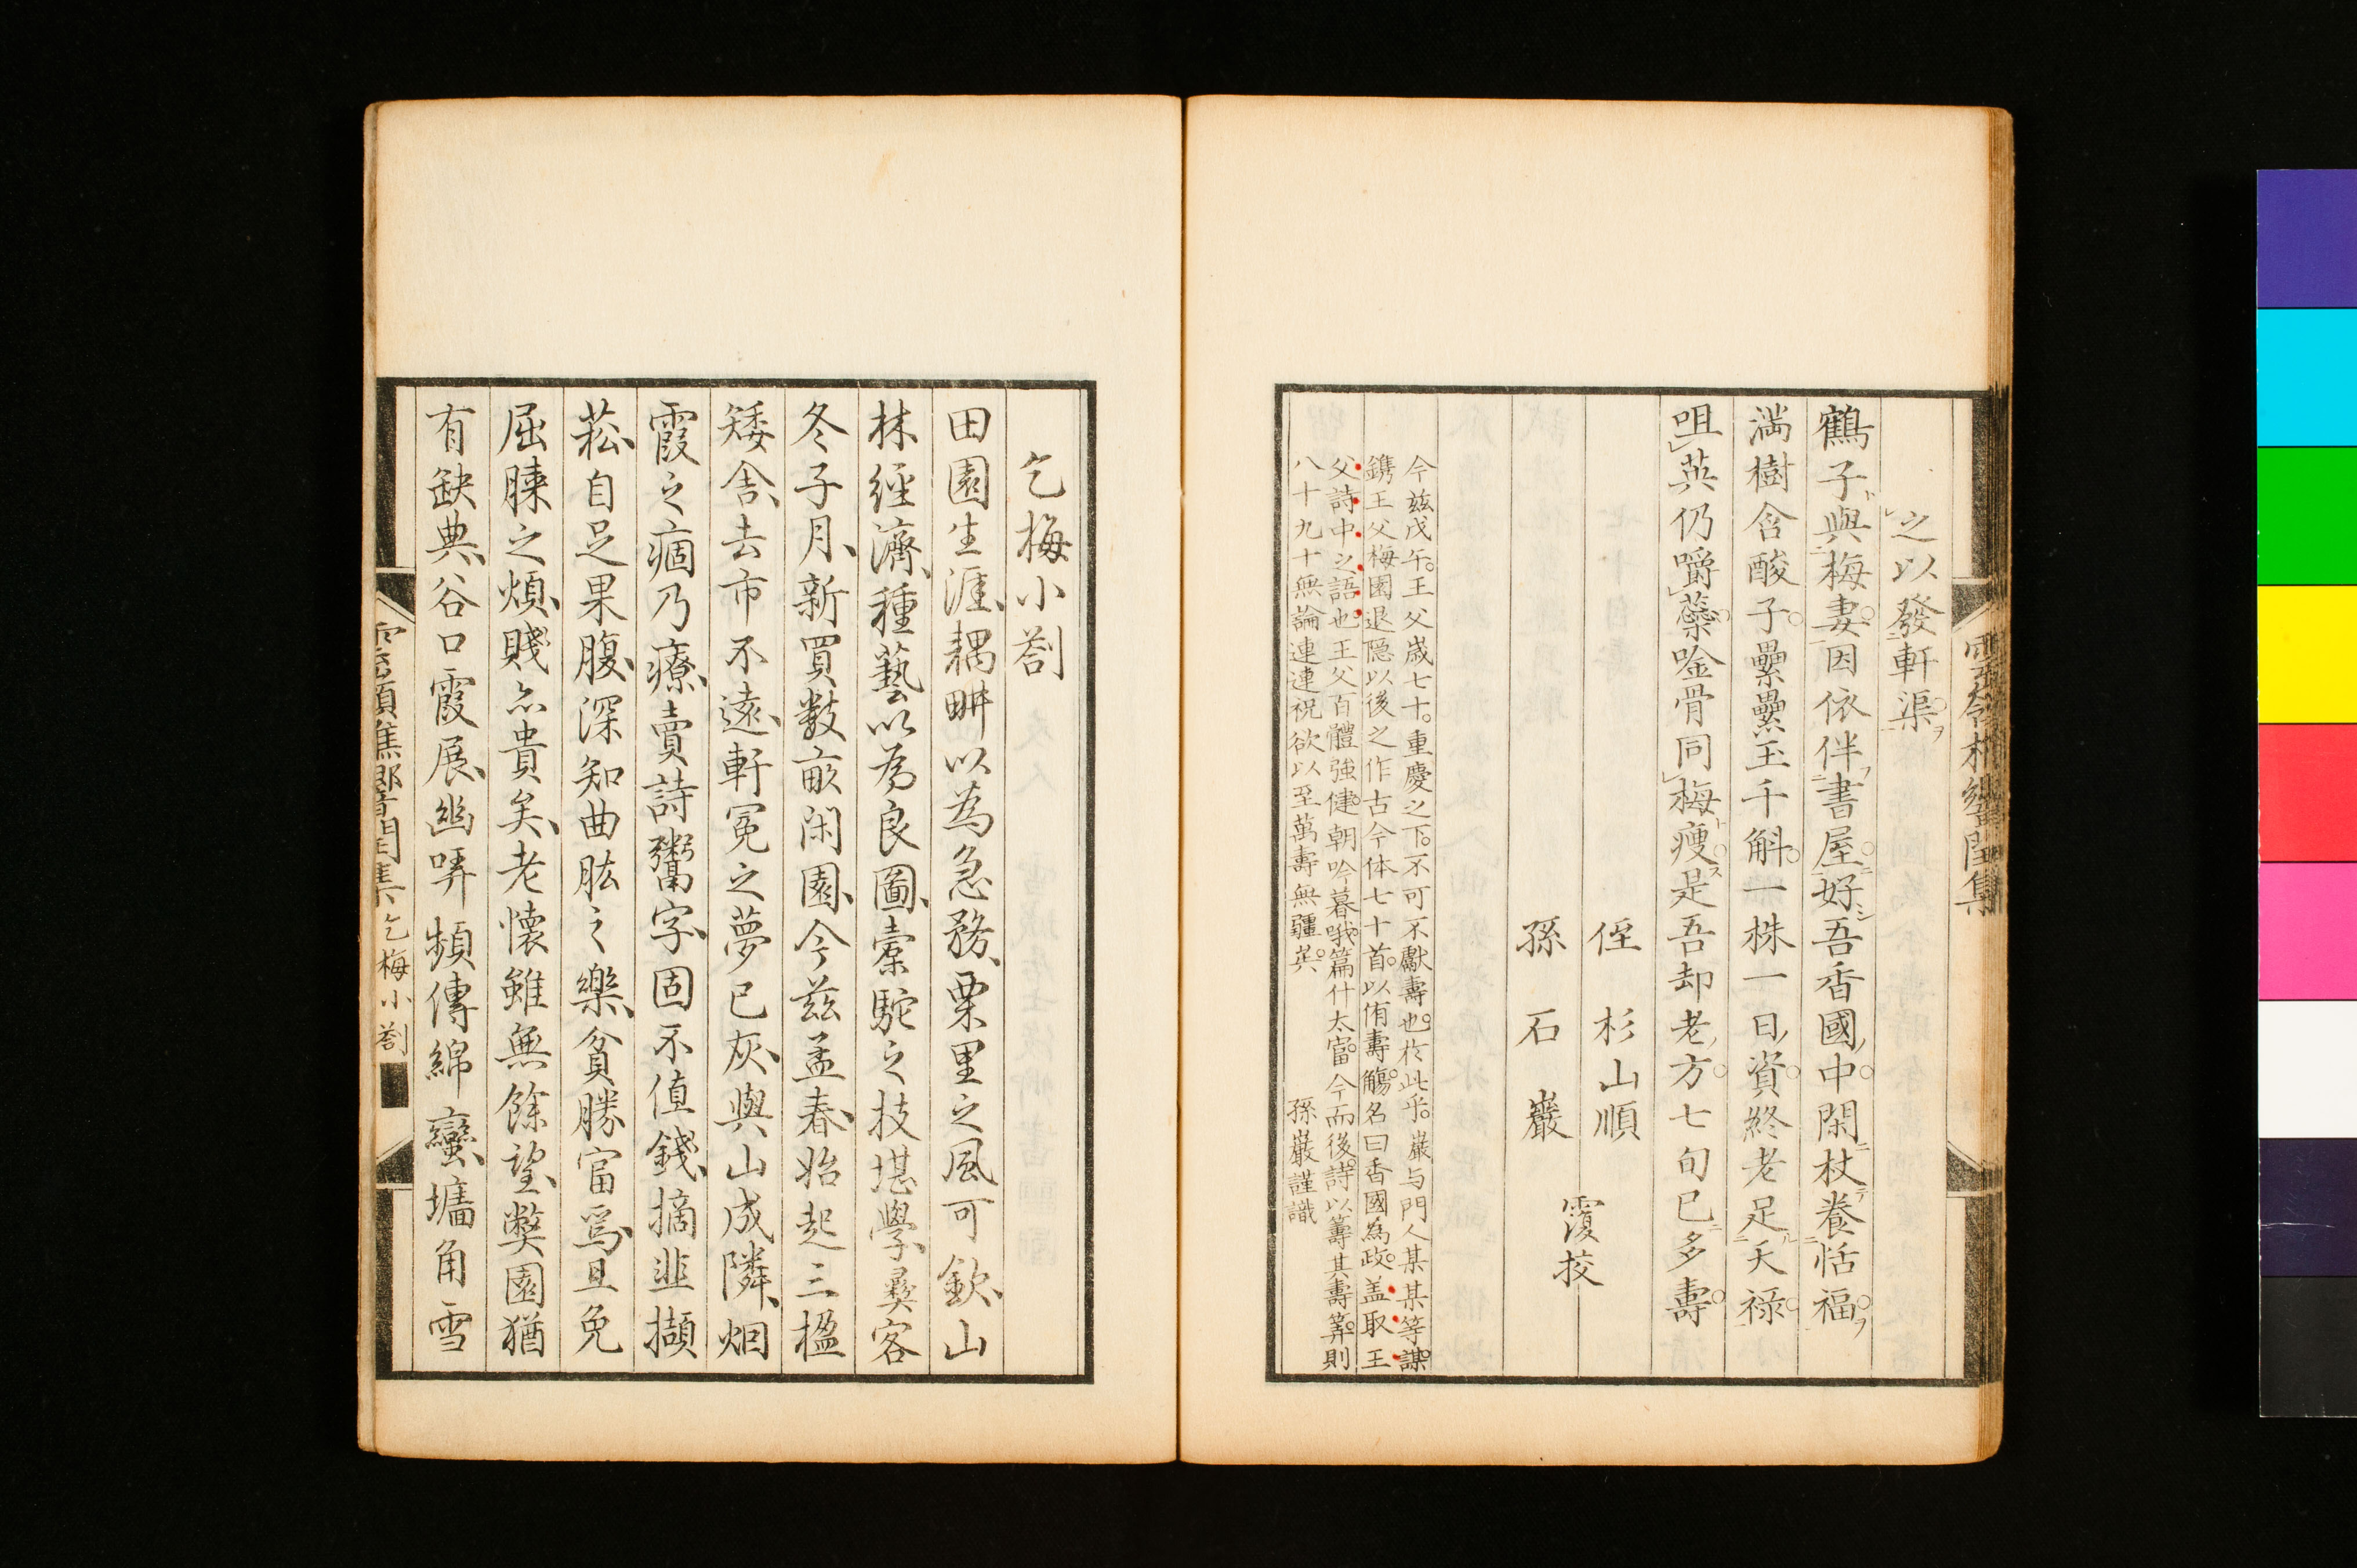 之以發軒渠
鶴子與梅妻因依伴書屋好吾香國中閑杖養恬福
満樹含酸子纍纍玉千斛一株一日資終老足天祿
咀英仍嚼蘂唫骨同梅瘦是吾却老方七旬已多壽
侄 杉山順
孫 石巖
覆挍
今茲戊午王父歳七十重慶之下不可不獻壽也於此乎巖与門人某某等謀
鐫王父梅園退隠以後之作古今体七十首以侑壽觴名曰香國為政盖取王
父詩中之語也王父百體強健朝吟暮哦篇什太富今而後詩以籌其壽筭則
八十九十無論連連祝欲以至萬壽無疆矣 孫巖謹識
乞梅小劄
田園生涯耦畊以為急務栗里之風可欽山
林經濟種藝以為良圖槖駝之技堪學彛客
冬子月新買數畝閑園今茲孟春始起三楹
矮舎去市不遠軒冕之夢已灰與山成隣烟
霞之痼乃療賣詩鬻字固不值錢摘韮擷
菘自足果腹深知曲肱之樂貧勝富焉且免
屈膝之煩賤亦貴矣老懐雖無餘望獘園猶
有缺典谷口霞展幽哢頻傳綿蠻墻角雪
乞梅小劄